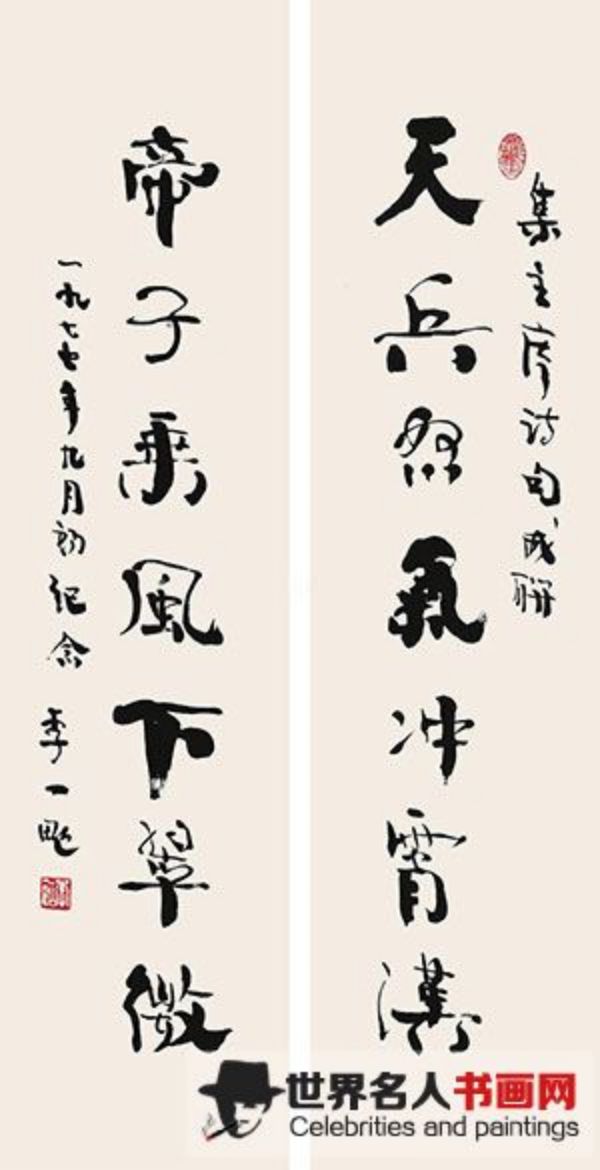 集主席诗句成联
天兵怒氣冲霄漢
帝子乘風下翠微
一九七七年九月初纪念
李一氓
世界名人书画网
Celebrities and paintings